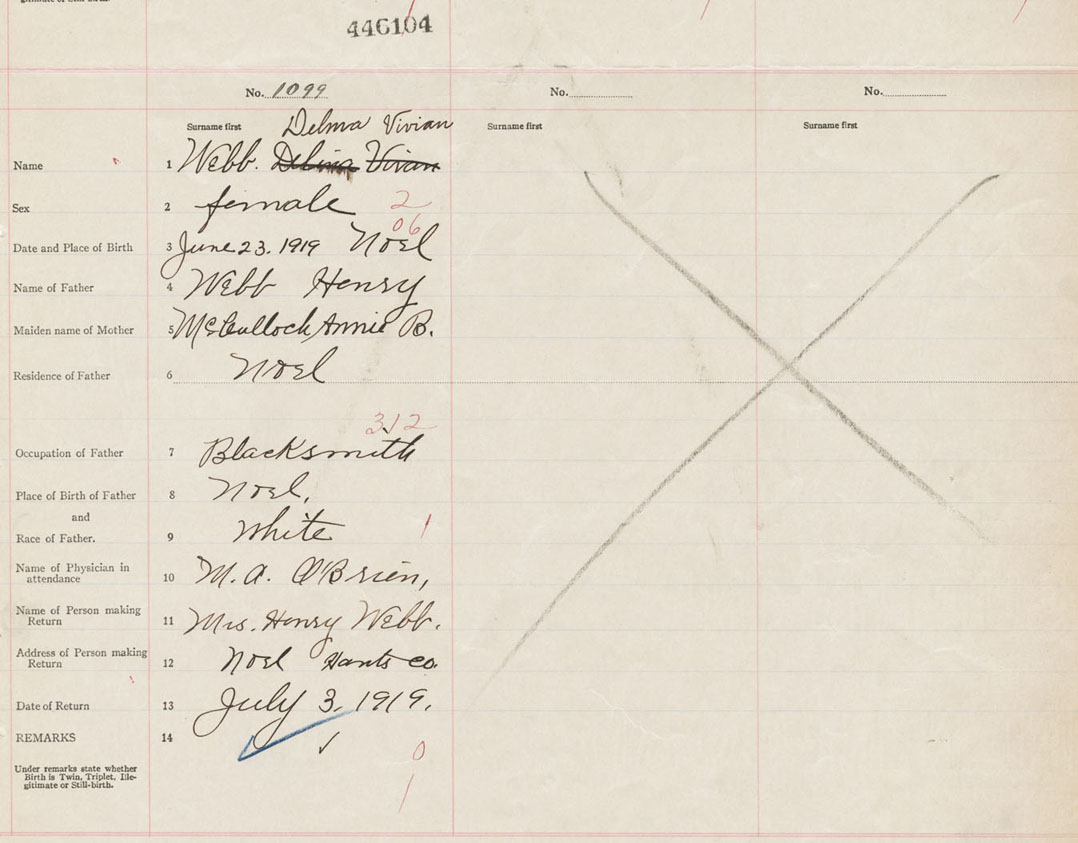 gitimate or Still-birth.
446104
No. 1099
No.
No.
Surname first Delma Vivian
Surname first
Surname first
Name 1 Webb. Delma Vivian
Sex 2 female 2
06
Date and Place of Birth 3 June 23. 1919 Noel
Name of Father 4 Webb Henry
Maiden name of Mother 5 McCullock Annie B.
Residence of Father 6 Noel
312
Occupation of Father 7 Blacksmith
Place of Birth of Father 8 Noel,
and
Race of Father. 9 White 1
Name of Physician in
attendance 10 M. A. O'Brien,
Name of Person making
Return 11 Mrs. Henry Webb.
Address of Person making
Return 12 Noel Hants Co.
Date of Return 13 July 3, 1919.
REMARKS 14
0
Under remarks state whether
Birth is Twin, Triplet, Ille-
gitimate or Still-birth.
1